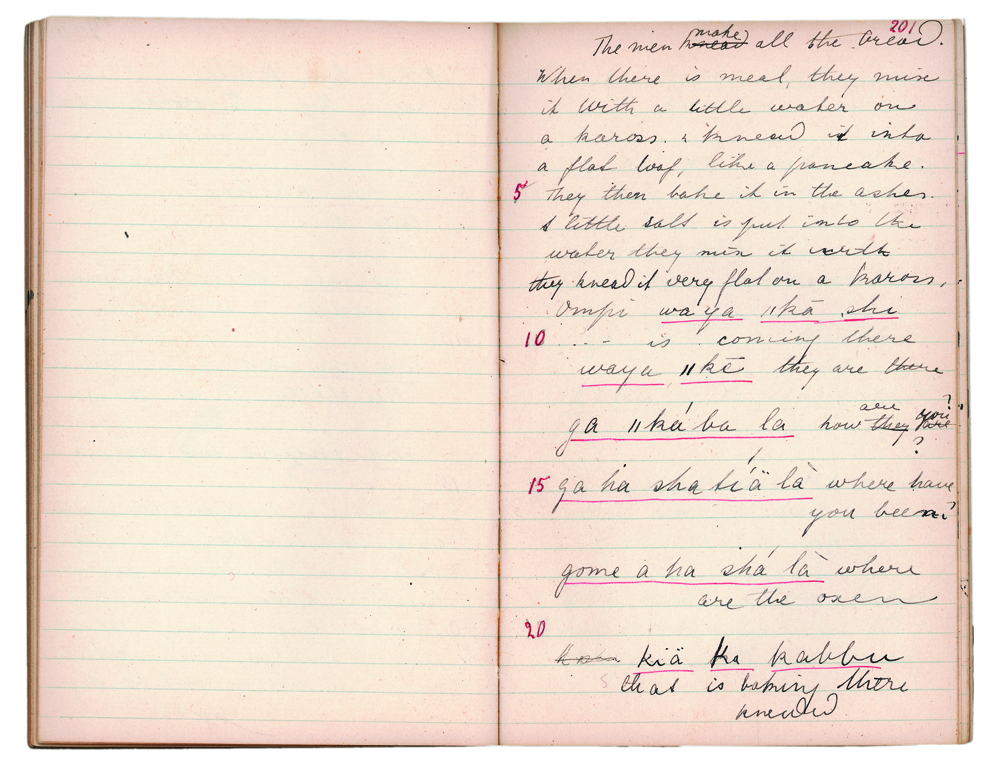 201
The men make all the bread.
When there is meal, they mix
it with a little water on
a kaross. & knead it into
a flat loaf, like a pancake.
5 They then bake it in the ashes.
A little salt is put into the
water they mix it with
they knead it very flat on a kaross.
Ompi waya ǁkā shi
10 . . - is coming there
waya ǁkē they are there
ga ǁká ba la how are you?
15 ga ha sha tíä là where have
you been?
gome a ha shá là where
are the oxen
20
kiä ka kabbu
that is baking there
knead